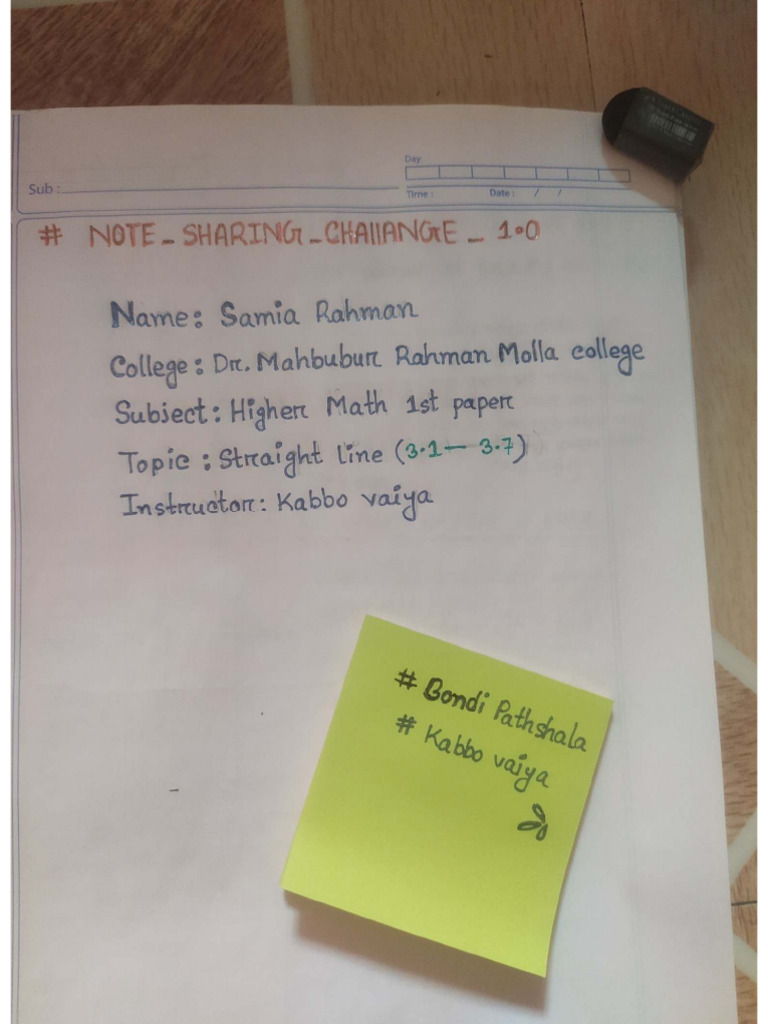 Day
Sub :
Time : Date : / /
# NOTE_SHARING_CHAllANGE_1.0
Name: Samia Rahman
College: Dr. Mahbubur Rahman Molla college
Subject: Higher Math 1st paper
Topic: Straight line (3.1 — 3.7)
Instructor: Kabbo vaiya
# Bondi Pathshala
# Kabbo vaiya